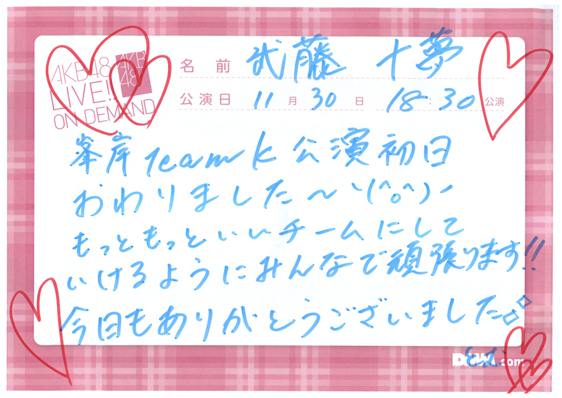 AKB48
LIVE!!
ON DEMAND
AKB
48
名前 武藤 十夢
公演日 11月30日 18:30公演
峯岸 Team K 公演初日
おわりました〜ヽ(^o^)ノ
もっともっといいチームにして
いけるようにみんなで頑張ります!!
今日もありがとうございました。
DMM.com